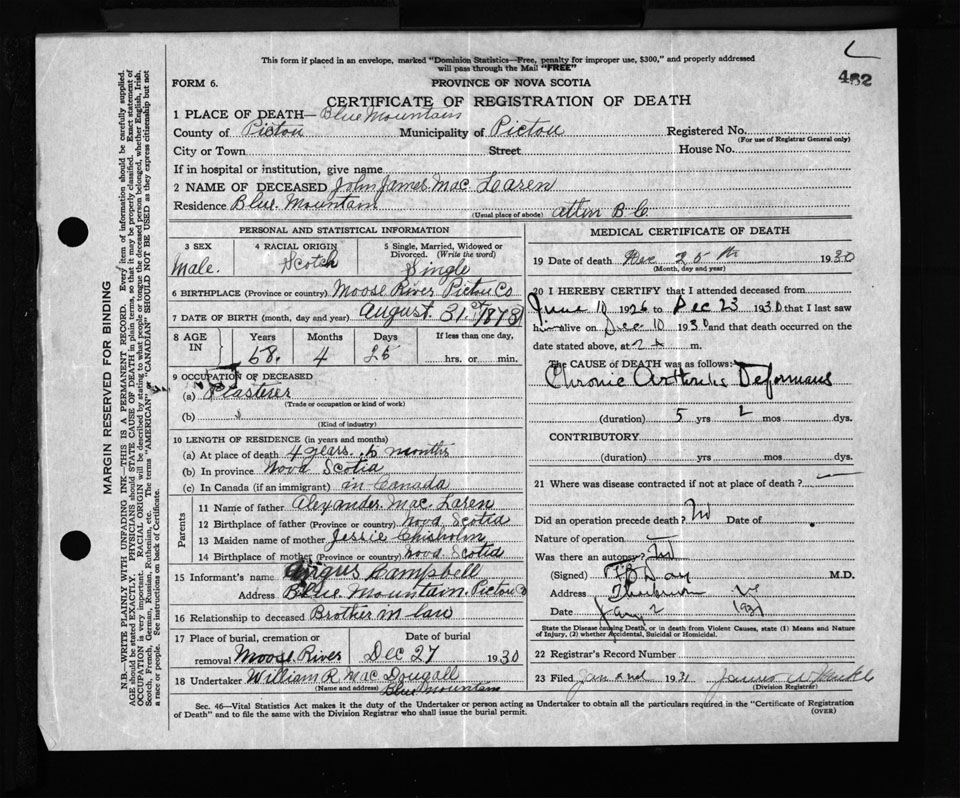 This form if placed in an envelope, marked "Dominion Statistics—Free, penalty for improper use, $300," and properly addressed
will pass through the Mail "FREE"
482
FORM 6.
PROVINCE OF NOVA SCOTIA
CERTIFICATE OF REGISTRATION OF DEATH
1 PLACE OF DEATH—Blue Mountain
County of Pictou Municipality of Pictou Registered No.
(For use of Registrar General only)
City or Town Street House No.
If in hospital or institution, give name
2 NAME OF DECEASED John James Mac Laren
Residence Blue Mountain
(Usual place of abode)
PERSONAL AND STATISTICAL INFORMATION
3 SEX
Male.
4 RACIAL ORIGIN
Scotch
5 Single, Married, Widowed or Divorced. (Write the word)
Single
6 BIRTHPLACE (Province or country) Moose River Pictou Co
7 DATE OF BIRTH (month, day and year) August 31st
8 AGE IN
Years Months Days If less than one day,
4 hrs. or min.
9 OCCUPATION OF DECEASED
(a) Plasterer
(Trade or occupation or kind of work)
(b)
(Kind of industry)
10 LENGTH OF RESIDENCE (in years and months)
(a) At place of death 4 years. 6 months
(b) In province Nova Scotia
(c) In Canada (if an immigrant) in Canada
Parents
11 Name of father Alexander Mac Laren
12 Birthplace of father (Province or country) Nova Scotia
13 Maiden name of mother Jessie Chisholm
14 Birthplace of mother (Province or country) Nova Scotia
15 Informant's name Angus Campbell
Address Blue Mountain. Pictou Co
16 Relationship to deceased Brother in law
17 Place of burial, cremation or removal Date of burial
Moose River Dec 27 1930
18 Undertaker William R. Mac Dougall
(Name and address) Blue Mountain
MEDICAL CERTIFICATE OF DEATH
19 Date of death Dec 25th 1930
(Month, day and year)
20 I HEREBY CERTIFY that I attended deceased from
June 10 1926 to Dec 23 1930 that I last saw
him alive on Dec 10 1930 and that death occurred on
date stated above, at m.
The CAUSE OF DEATH was as follows:
Chronic Arthritis Deformans
(duration) 5 yrs 2 mos dys.
CONTRIBUTORY
(duration) yrs. mos. dys.
21 Where was disease contracted if not at place of death?
Did an operation precede death? No Date of
Nature of operation
Was there an autopsy?
(Signed) F B Day M.D.
Address Thorburn
Date Jany 2 1931
State the Disease causing Death, or in death from Violent Causes, state (1) Means and Nature of Injury, (2) whether Accidental, Suicidal or Homicidal.
22 Registrar's Record Number
23 Filed Jan 2nd 1931
(Division Registrar)
Sec. 46—Vital Statistics Act makes it the duty of the Undertaker or person acting as Undertaker to obtain all the particulars required in the "Certificate of Registration
of Death" and to file the same with the Division Registrar who shall issue the burial permit. (OVER)
MARGIN RESERVED FOR BINDING
N.B.—WRITE PLAINLY WITH UNFADING INK—THIS IS A PERMANENT RECORD. Every item of information should be carefully supplied.
AGE should be stated EXACTLY. PHYSICIANS should STATE CAUSE OF DEATH in plain terms, so that it may be properly classified. Exact statement of
OCCUPATION is very important. RACIAL ORIGIN will be described by stating to what people or tongue the deceased person belonged, whether English, Irish,
Scotch, French, German, Russian, Ruthenian, etc. The terms "AMERICAN" or "CANADIAN" SHOULD NOT BE USED as they express citizenship but not
a race or people. See instructions on back of Certificate.